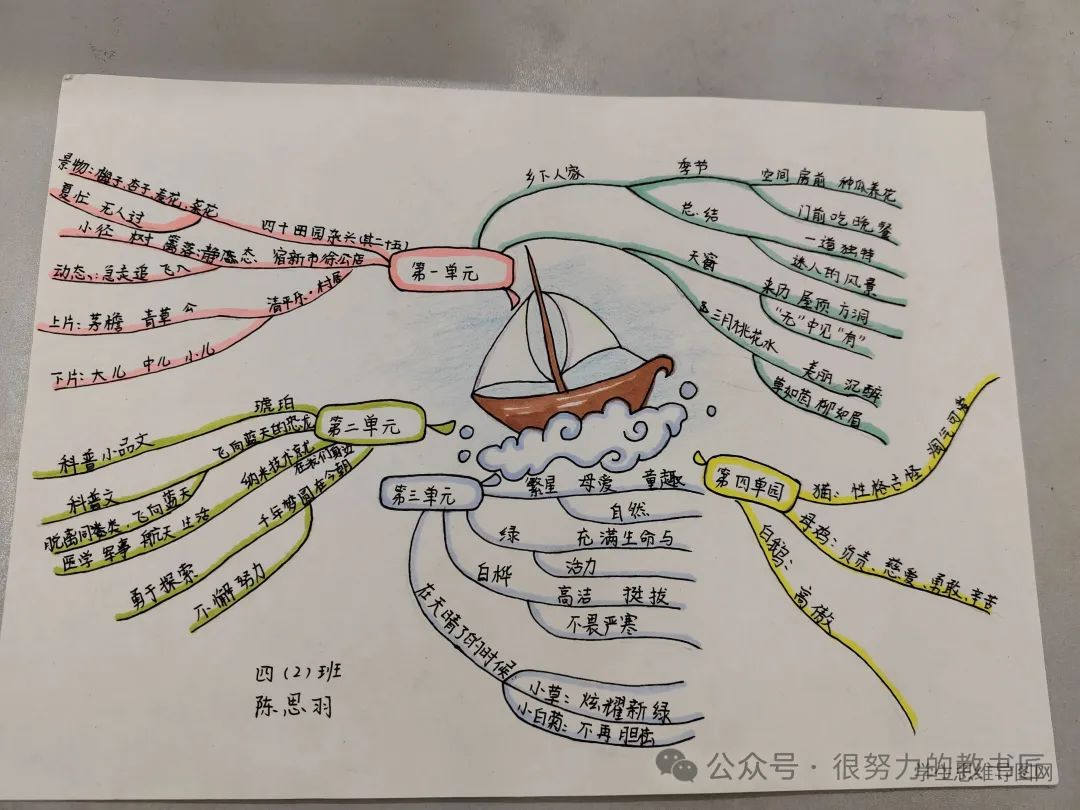 第一单元
四十田园杂兴(其二十五)
景物:梅子、杏子、麦花、菜花
夏忙 无人过
宿新市徐公店
小径 树 篱落:静态
动态:急走追 飞入
清平乐·村居
上片:茅檐 青草
下片:大儿 中儿 小儿
乡下人家
季节
空间 房前 种瓜养花
门前吃晚餐
总结
一道独特
迷人的风景
天窗
来历 屋顶 方洞
“无”中见“有”
三月桃花水
美丽 沉醉
草如茵 柳如眉
第二单元
琥珀
科普小品文
飞向蓝天的恐龙
科普文
脱离同类,飞向蓝天
纳米技术就
在我们身边
医学 军事 航天 生活
千年梦圆在今朝
勇于探索
不懈努力
第三单元
繁星 母爱 童趣
自然
绿
充满生命与
活力
白桦
高洁 挺拔
不畏严寒
在天晴了的时候
小草:炫耀新绿
小白菊:不再胆怯
第四单园
猫:性格古怪,淘气可爱
母鸡:负责、慈爱、勇敢、辛苦
白鹅:
高傲
四(2)班
陈思羽
公众号·很努力的教书匠
学生思维导图网